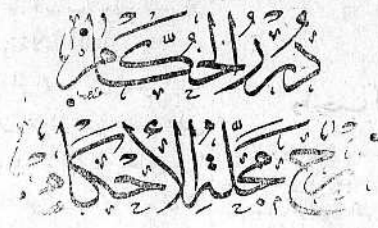 دُرَرُ الحُكَّامِ
شرح مَجَلَّةِ الأَحْكَام